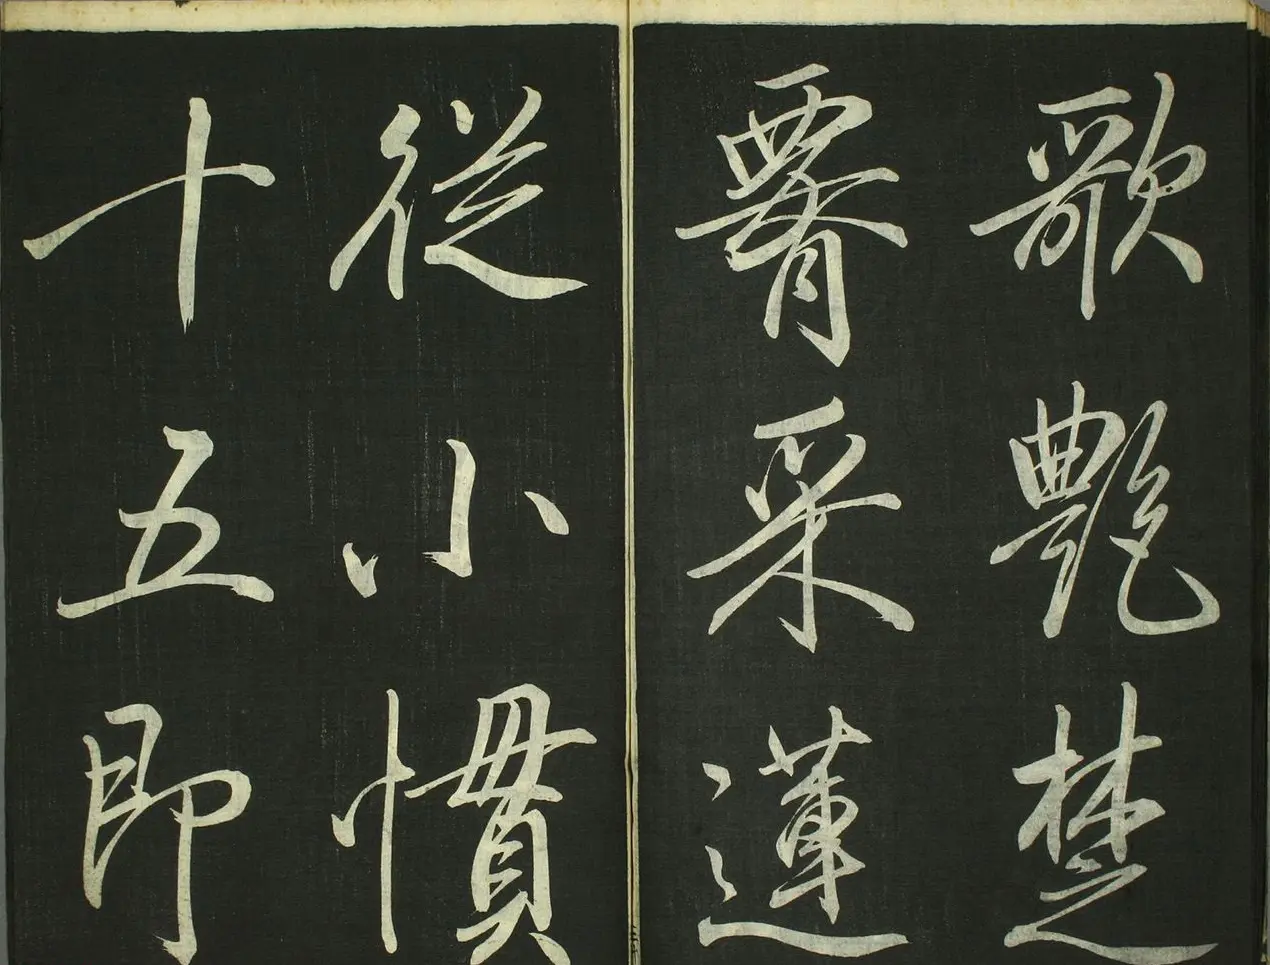 歌艶楚
腰采蓮
從小慣
十五即